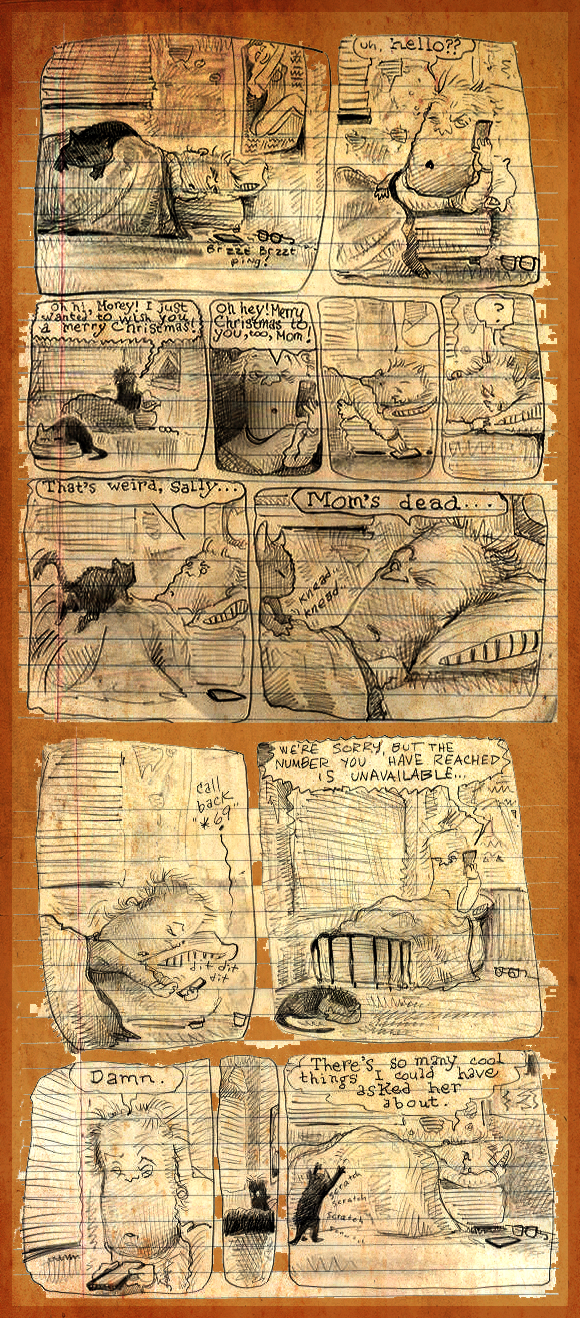 Brzzt Brzzt
ping!
uh, hello??
Oh hi, Morey! I just
wanted to wish you
a merry Christmas!
Oh hey! Merry
Christmas to
you, too, Mom!
?
That's weird, Sally...
Mom's dead...
knead..
knead
call
back
"*69"
dit dit
dit
WE'RE SORRY, BUT THE
NUMBER YOU HAVE REACHED
IS UNAVAILABLE...
Damn.
There's so many cool
things I could have
asked her
about.
scratch
scratch
scratch